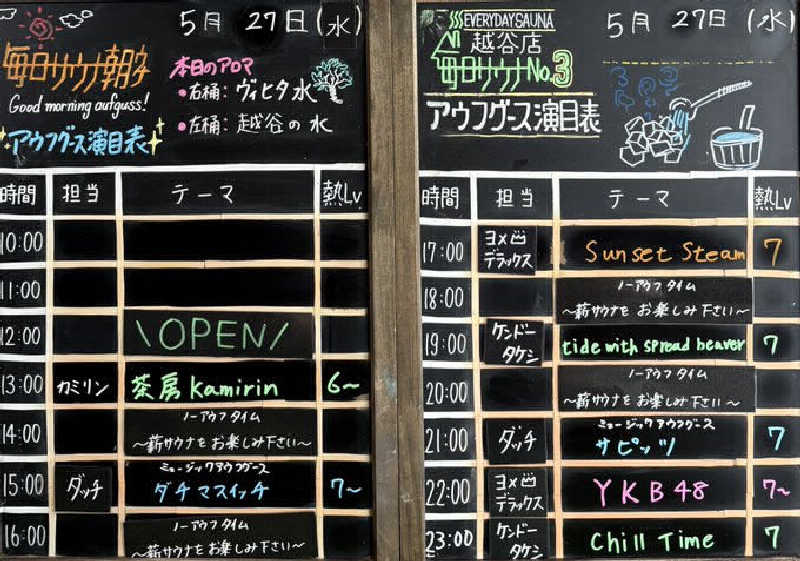 5月 27日(水)
毎日サウナ朝タ
Good morning aufguss!
アウフグース演目表
本日のアロマ
・右桶: ヴィヒタ水
・左桶: 越谷の水
時間 担当 テーマ 熱Lv
10:00
11:00
12:00 \OPEN/
13:00 カミリン 茶房kamirin 6~
14:00 ノーアウフタイム
~薪サウナをお楽しみ下さい~
15:00 ダッチ ミュージックアウフグース
ダチマスイッチ 7~
16:00 ノーアウフタイム
~薪サウナをお楽しみ下さい~
EVERYDAY SAUNA
越谷店
毎日サウナNo.3
アウフグース演目表
5月 27日(水)
時間 担当 テーマ 熱Lv
17:00 ヨメ凹
デラックス Sunset Steam 7
18:00 ノーアウフタイム
~薪サウナをお楽しみ下さい~
19:00 ケンドー
タケシ tide with spread beaver 7
20:00 ノーアウフタイム
~薪サウナをお楽しみ下さい~
21:00 ダッチ ミュージックアウフグース
サピッツ 7
22:00 ヨメ凹
デラックス YKB48 7~
23:00 ケンドー
タケシ Chill Time 7